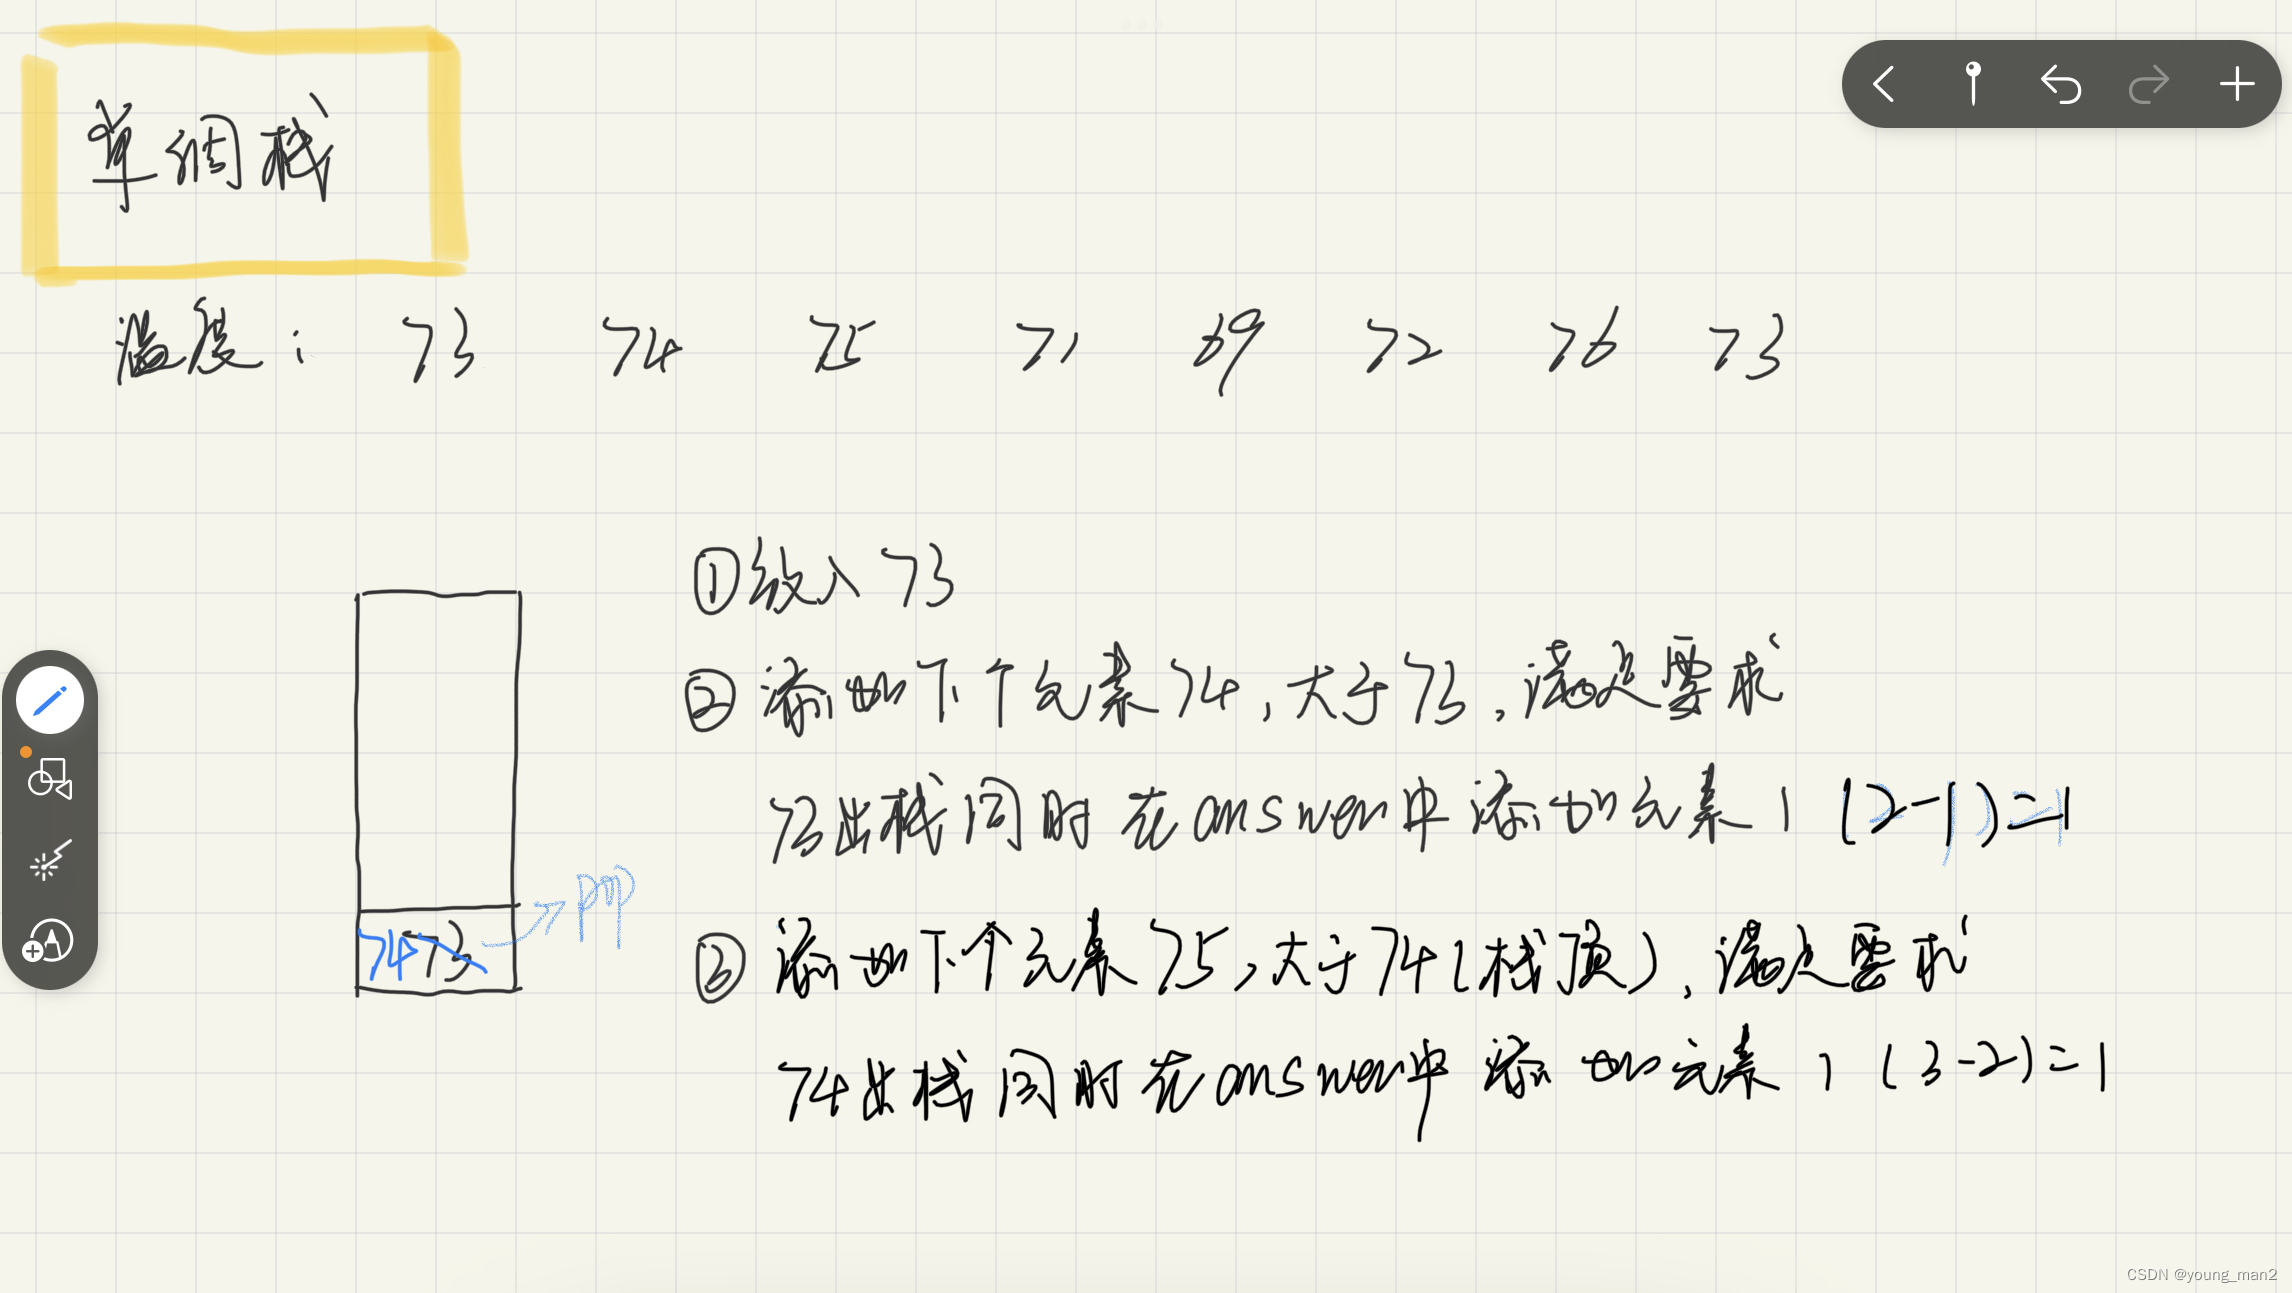 单调栈
温度： 73 74 75 71 69 72 76 73
①放入73
②添加下个元素74,大于73,满足要求
73出栈同时在answer中添加元素1 (2-1)=1
pop
74 73
③添加下个元素75,大于74(栈顶),满足要求
74出栈同时在answer中添加元素1 (3-2)=1
CSDN @young_man2